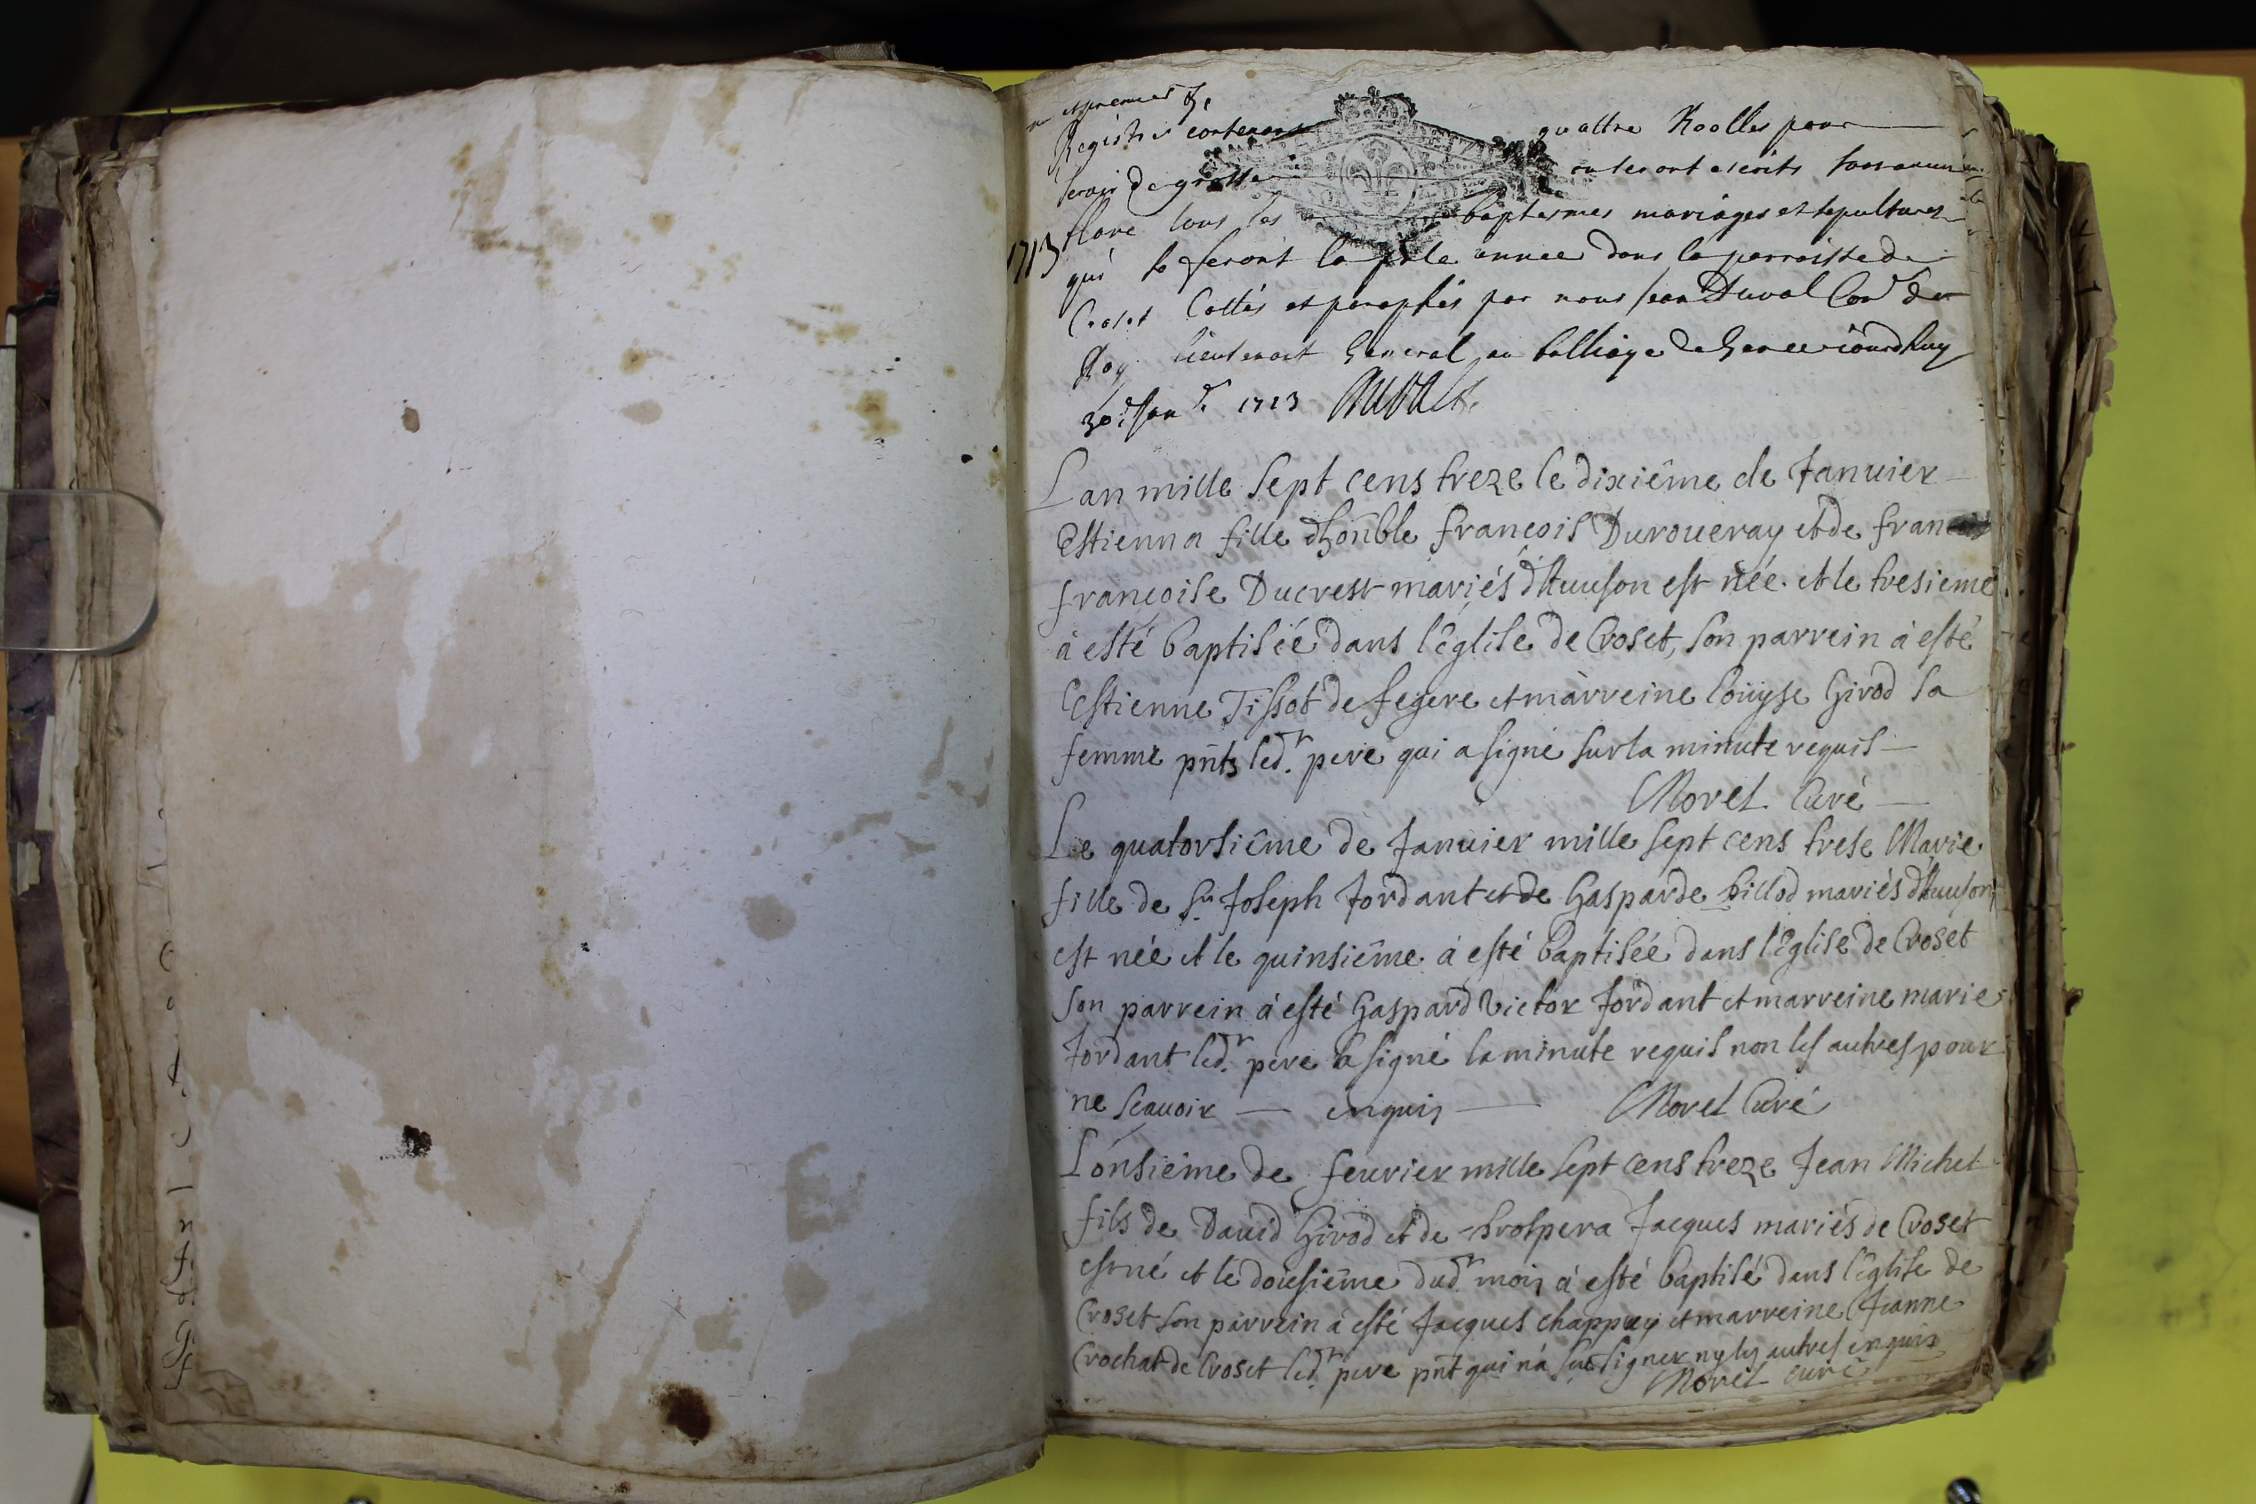 Registre contenant quattre Roolles pour
servir de grosse
tous les baptesmes mariages et sepultures
1713
qui se feront la pnte annee dans la parroisse de
Croset Cottés et paraphés par nous Jean Duval Conr du
Roy lieutenant General au balliage de Gex ce iourdhuy
30e Janr 1713 Duval
Lan mille sept cens treze le dixiême de Januier
Estienna fille dhonble françois Duroueray et de
françoise Ducrest mariés d'Auuson est née. et le tresieme
à esté baptisée dans l'église de Croset, son parrein à esté
Estienne Tissot de fegere et marreine loüyse Girod sa
femme pnts led.t pere qui a signé sur la minute requis
Morel Curé
Le quatorsiême de Januier mille sept cens trese Marie
fille de Sr Joseph Jordant et de Gasparde billod mariés d'Auuson
est née et le quinsiême à esté baptisée dans l'église de Croset
son parrein à esté Gaspard Victor Jordant et marreine marie
Jordant led.t pere a signé la minute requis non les autres pour
ne scauoir — enquis — Morel Curé
L'onsiême de feurier mille sept cens treze Jean Michel
fils de Dauid Girod et de prospera Jacques mariés de Croset
est né et le dousiême dud.t mois à esté baptisé dans l'église de
Croset son parrein à esté Jacques chappuy et marreine Jeanne
Crochat de Croset led.t pere pnt qui n'a sceu signer ny les autres enquis
Morel curé